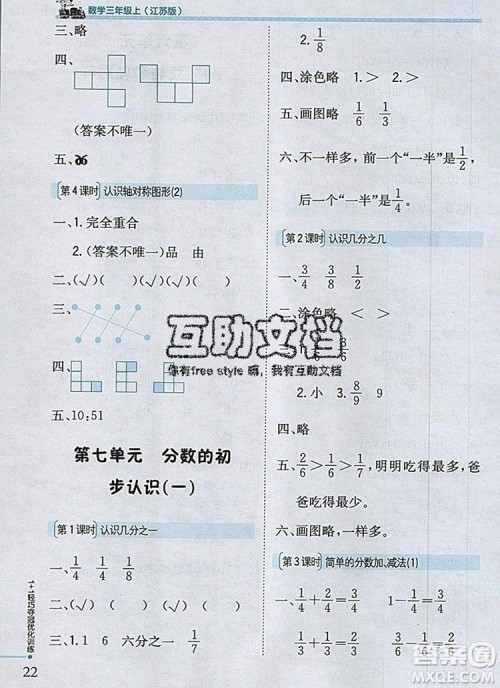 数学三年级上(江苏版)
三、略
四、
(答案不唯一)
五、
第4课时 认识轴对称图形(2)
一、1. 完全重合
2. (答案不唯一)品 由
二、(√)( )(√)( )( )
三、
四、
五、10:51
第七单元 分数的初
步认识(一)
第1课时 认识几分之一
一、1/4 1/4
二、(√)( )( )(√)
三、1. 1 6 六分之一 1/7
2. 1/8
四、涂色略 1. > 2. >
五、画图略 1/6 1/3
六、不一样多,前一个“一半”是1/2,
后一个“一半”是1/4
第2课时 认识几分之几
一、3/4 3/8
二、涂色略 < >
2. 小 3. 8/9
四、略
五、2/6>1/6,明明吃得最多,
吃得最少。
六、画图略。
第3课时 简单的分数加、减法(1)
互助文档
你有free style嘛,我有文档嘛
1+1轻巧夺冠优化训练
22
答案圈
MXQE.COM